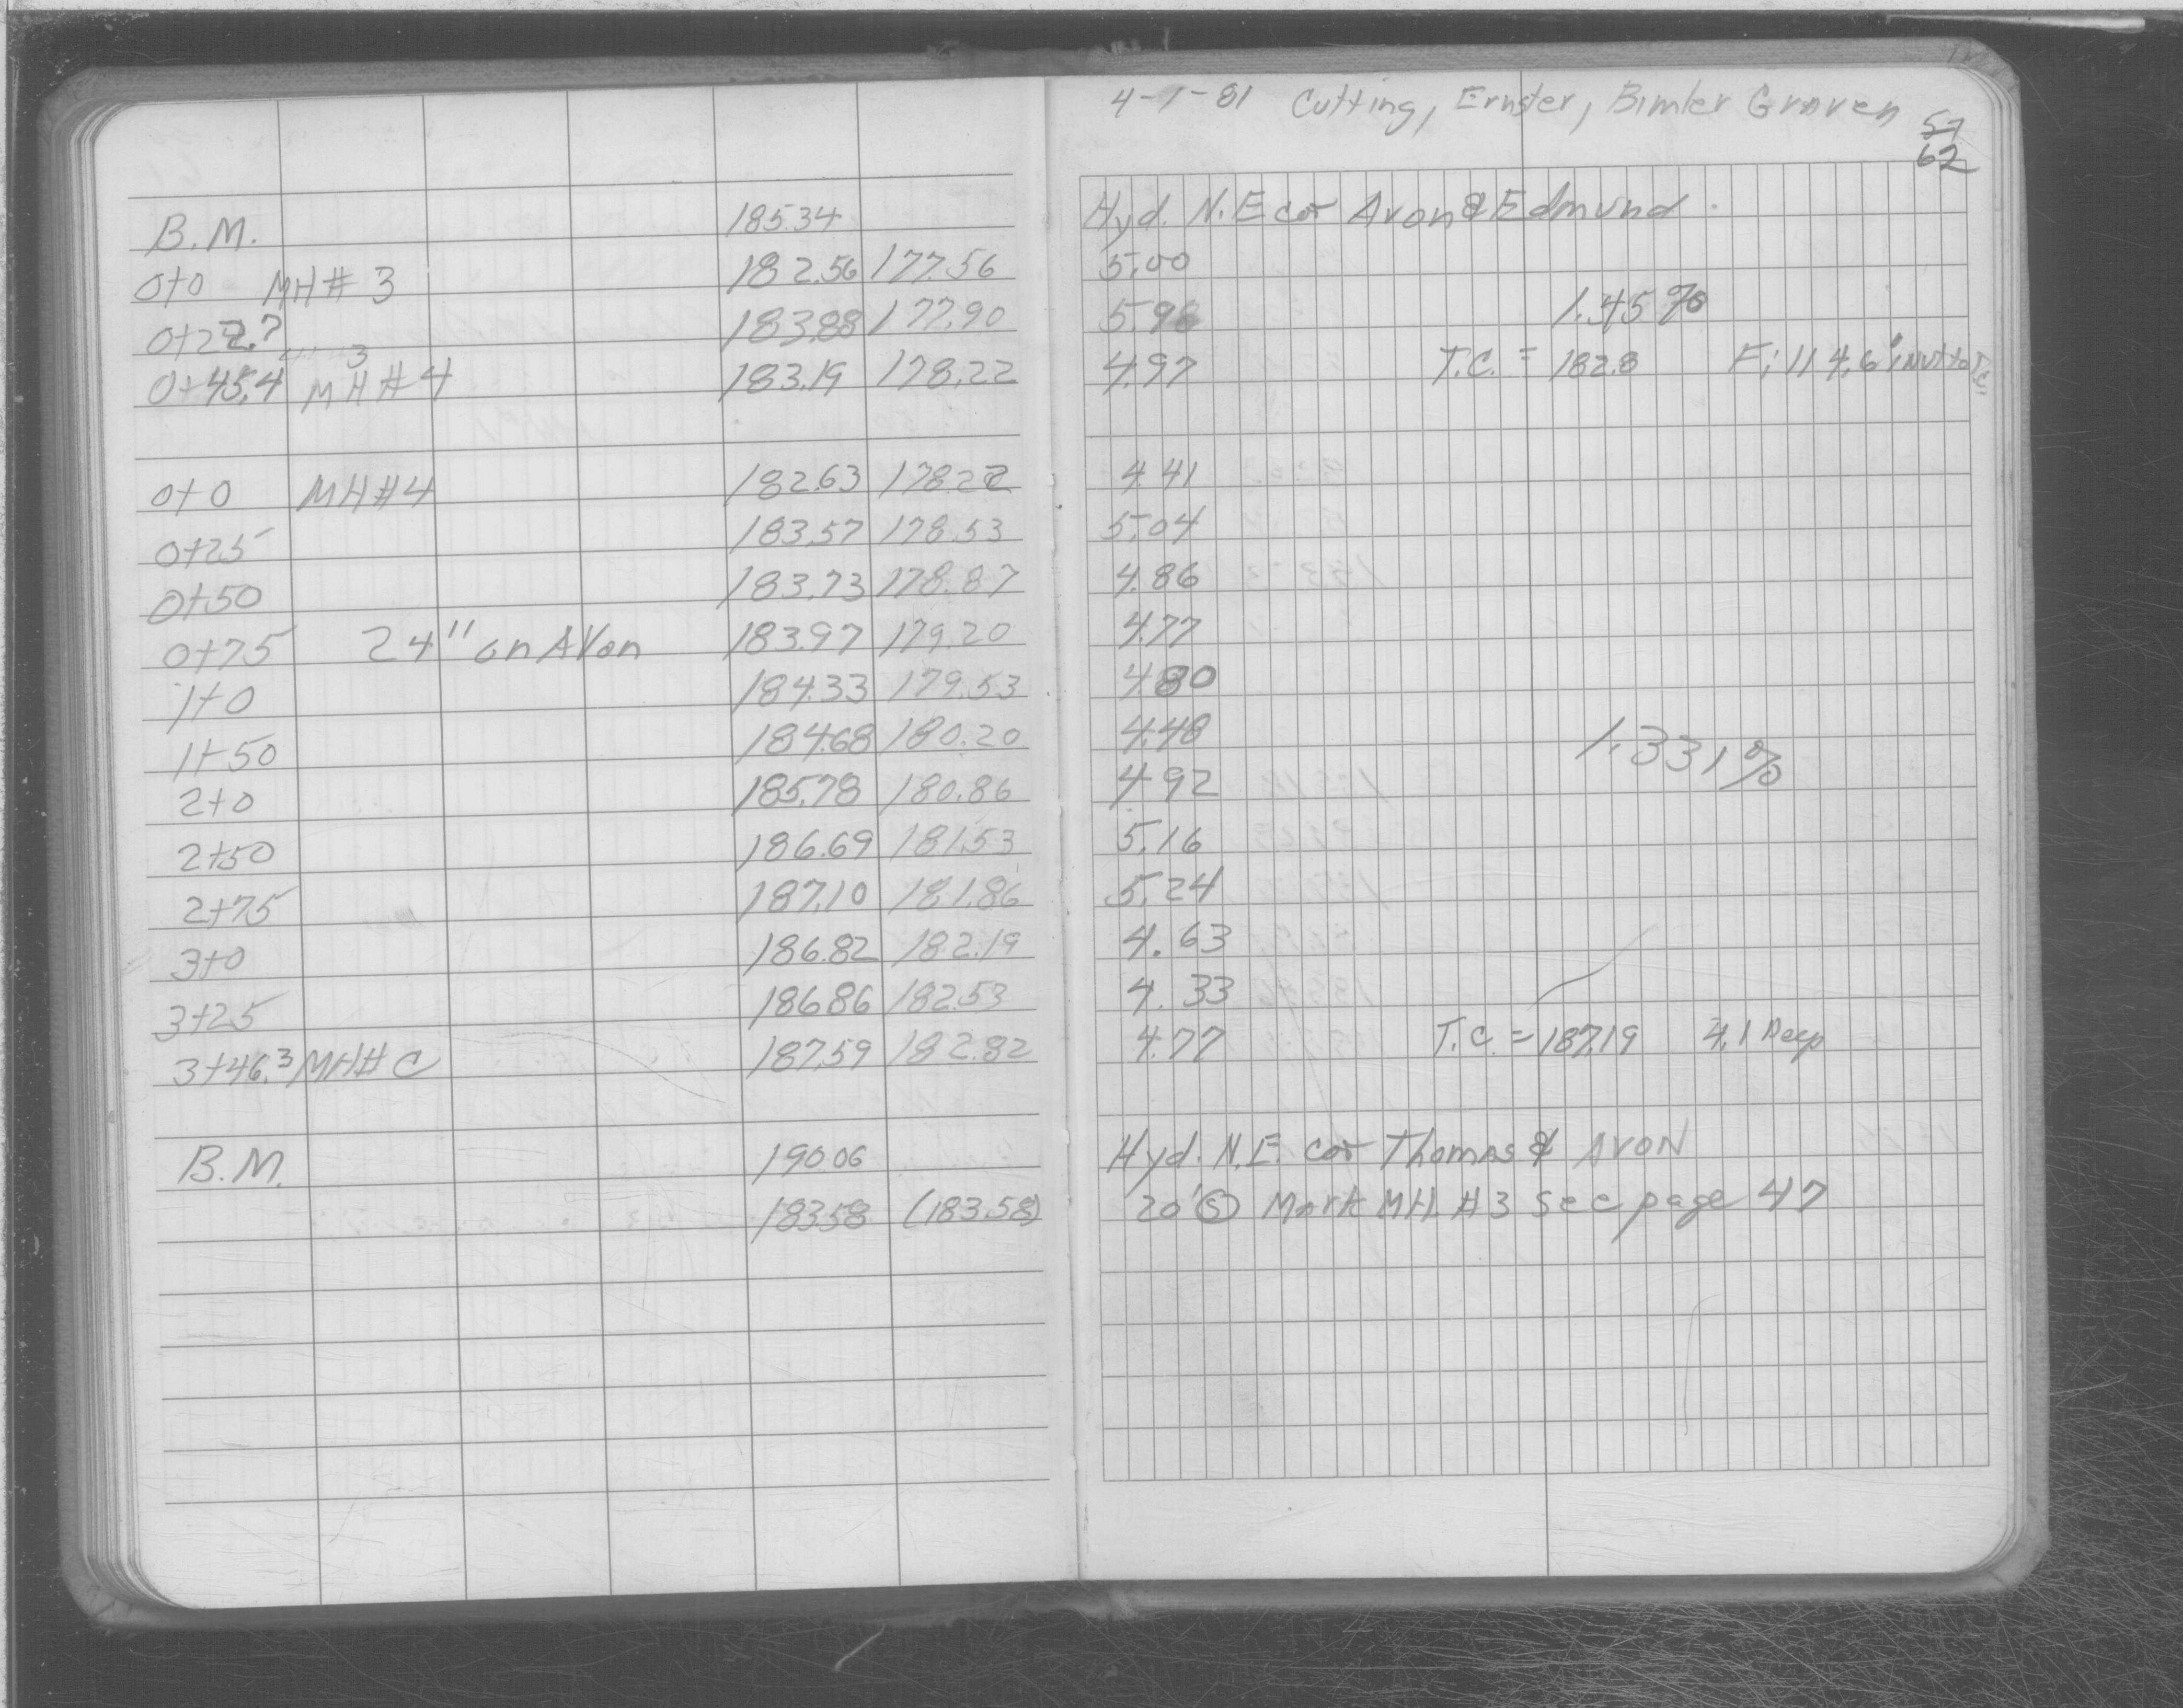 4-1-81 Cutting, Ernster, Bimler Graven
57
62
B.M. 185.34 Hyd. N.E cor Avon & Edmund.
0+0 MH# 3 182.56 177.56 5.00
0+22.7 183.88 177.90 5.98 1.45%
3
0+45.4 MH#4 183.19 178.22 4.97 T.C. = 182.8 Fill 4.6' invt to T.C.
0+0 MH#4 182.63 178.22 4.41
0+25 183.57 178.53 5.04
0+50 183.73 178.87 4.86
0+75 24" on Avon 183.97 179.20 4.77
1+0 184.33 179.53 4.80
1+50 184.68 180.20 4.48 1.331%
2+0 185.78 180.86 4.92
2+50 186.69 181.53 5.16
2+75 187.10 181.86 5.24
3+0 186.82 182.19 4.63
3+25 186.86 182.53 4.33
3+46.3 MH# C 187.59 182.82 4.77 T.C. = 187.19 4.1 Deep
B.M. 190.06 Hyd. N.E. cor Thomas & AVON
183.58 (183.58) 20' Ⓢ Mark MH #3 see page 47